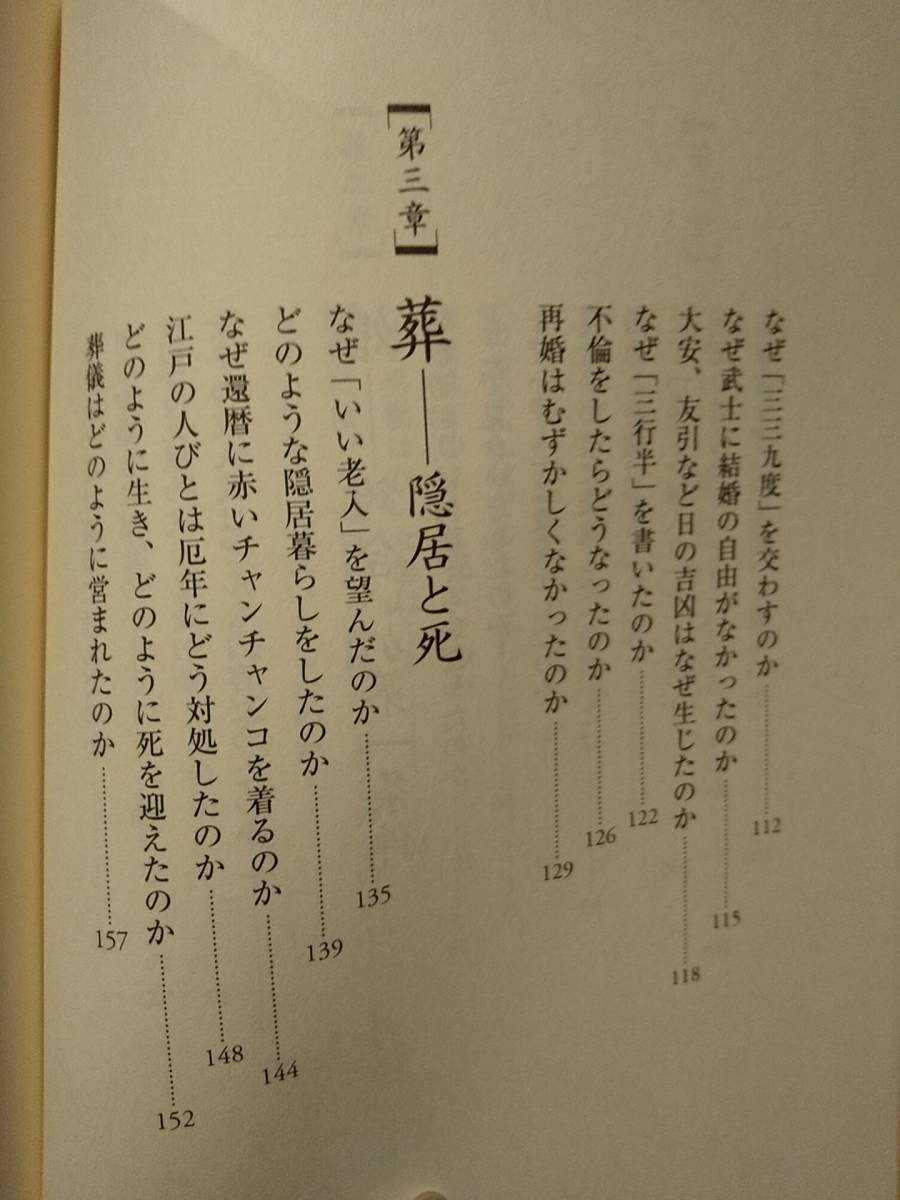 なぜ「三三九度」を交わすのか………112
なぜ武士に結婚の自由がなかったのか………115
大安、友引など日の吉凶はなぜ生じたのか………118
なぜ「三行半」を書いたのか………122
不倫をしたらどうなったのか………126
再婚はむずかしくなかったのか………129
[第三章] 葬――隠居と死
なぜ「いい老入」を望んだのか………135
どのような隠居暮らしをしたのか………139
なぜ還暦に赤いチャンチャンコを着るのか………144
江戸の人びとは厄年にどう対処したのか………148
どのように生き、どのように死を迎えたのか………152
葬儀はどのように営まれたのか………157